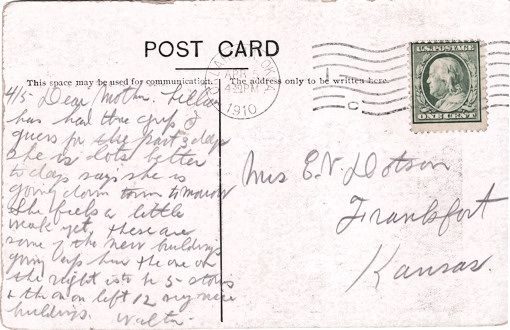 POST CARD
This space may be used for communication.
The address only to be written here.
1910
U.S. POSTAGE
ONE CENT
4/5- Dear Mother. Lillas
has had the grip I
guess for the past 3 days
She is lots better
to day says she is
going down town tomorrow
She feels a little
weak yet, these are
some of the new buildings
going up here the one on
the right is to be 5 stories
& the on on left 12 very nice
buildings. Walter.
Mrs E. V. Dotson
Frankfort
Kansas.